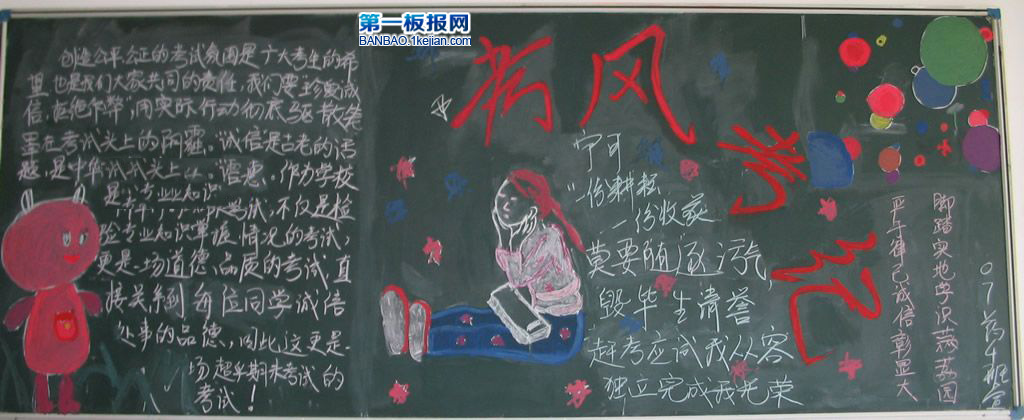 第一板报网
BANBAO.1kejian.com
创造公平公正的考试氛围是广大考生的希
望,也是我们大家共同的责任,我们要"珍爱诚
信,拒绝作弊",用实际行动彻底驱散笼
罩在考试关上的阴霾。诚信是古老的话
题,是中华
作为学校
是 专业知识
考试,不仅是检
验专业知识掌握情况的考试,
更是一场道德品质的考试,直
接关系到每位同学诚信
处事的品德,因此,这更是一
场超乎期末考试的
考试!
考风
考纪
宁可
一份耕耘
一份收获
莫要随逐污气
毁毕生清誉
赶考应试我从容
独立完成我光荣
脚踏实地学识荡荡园
严于律己诚信彰显大